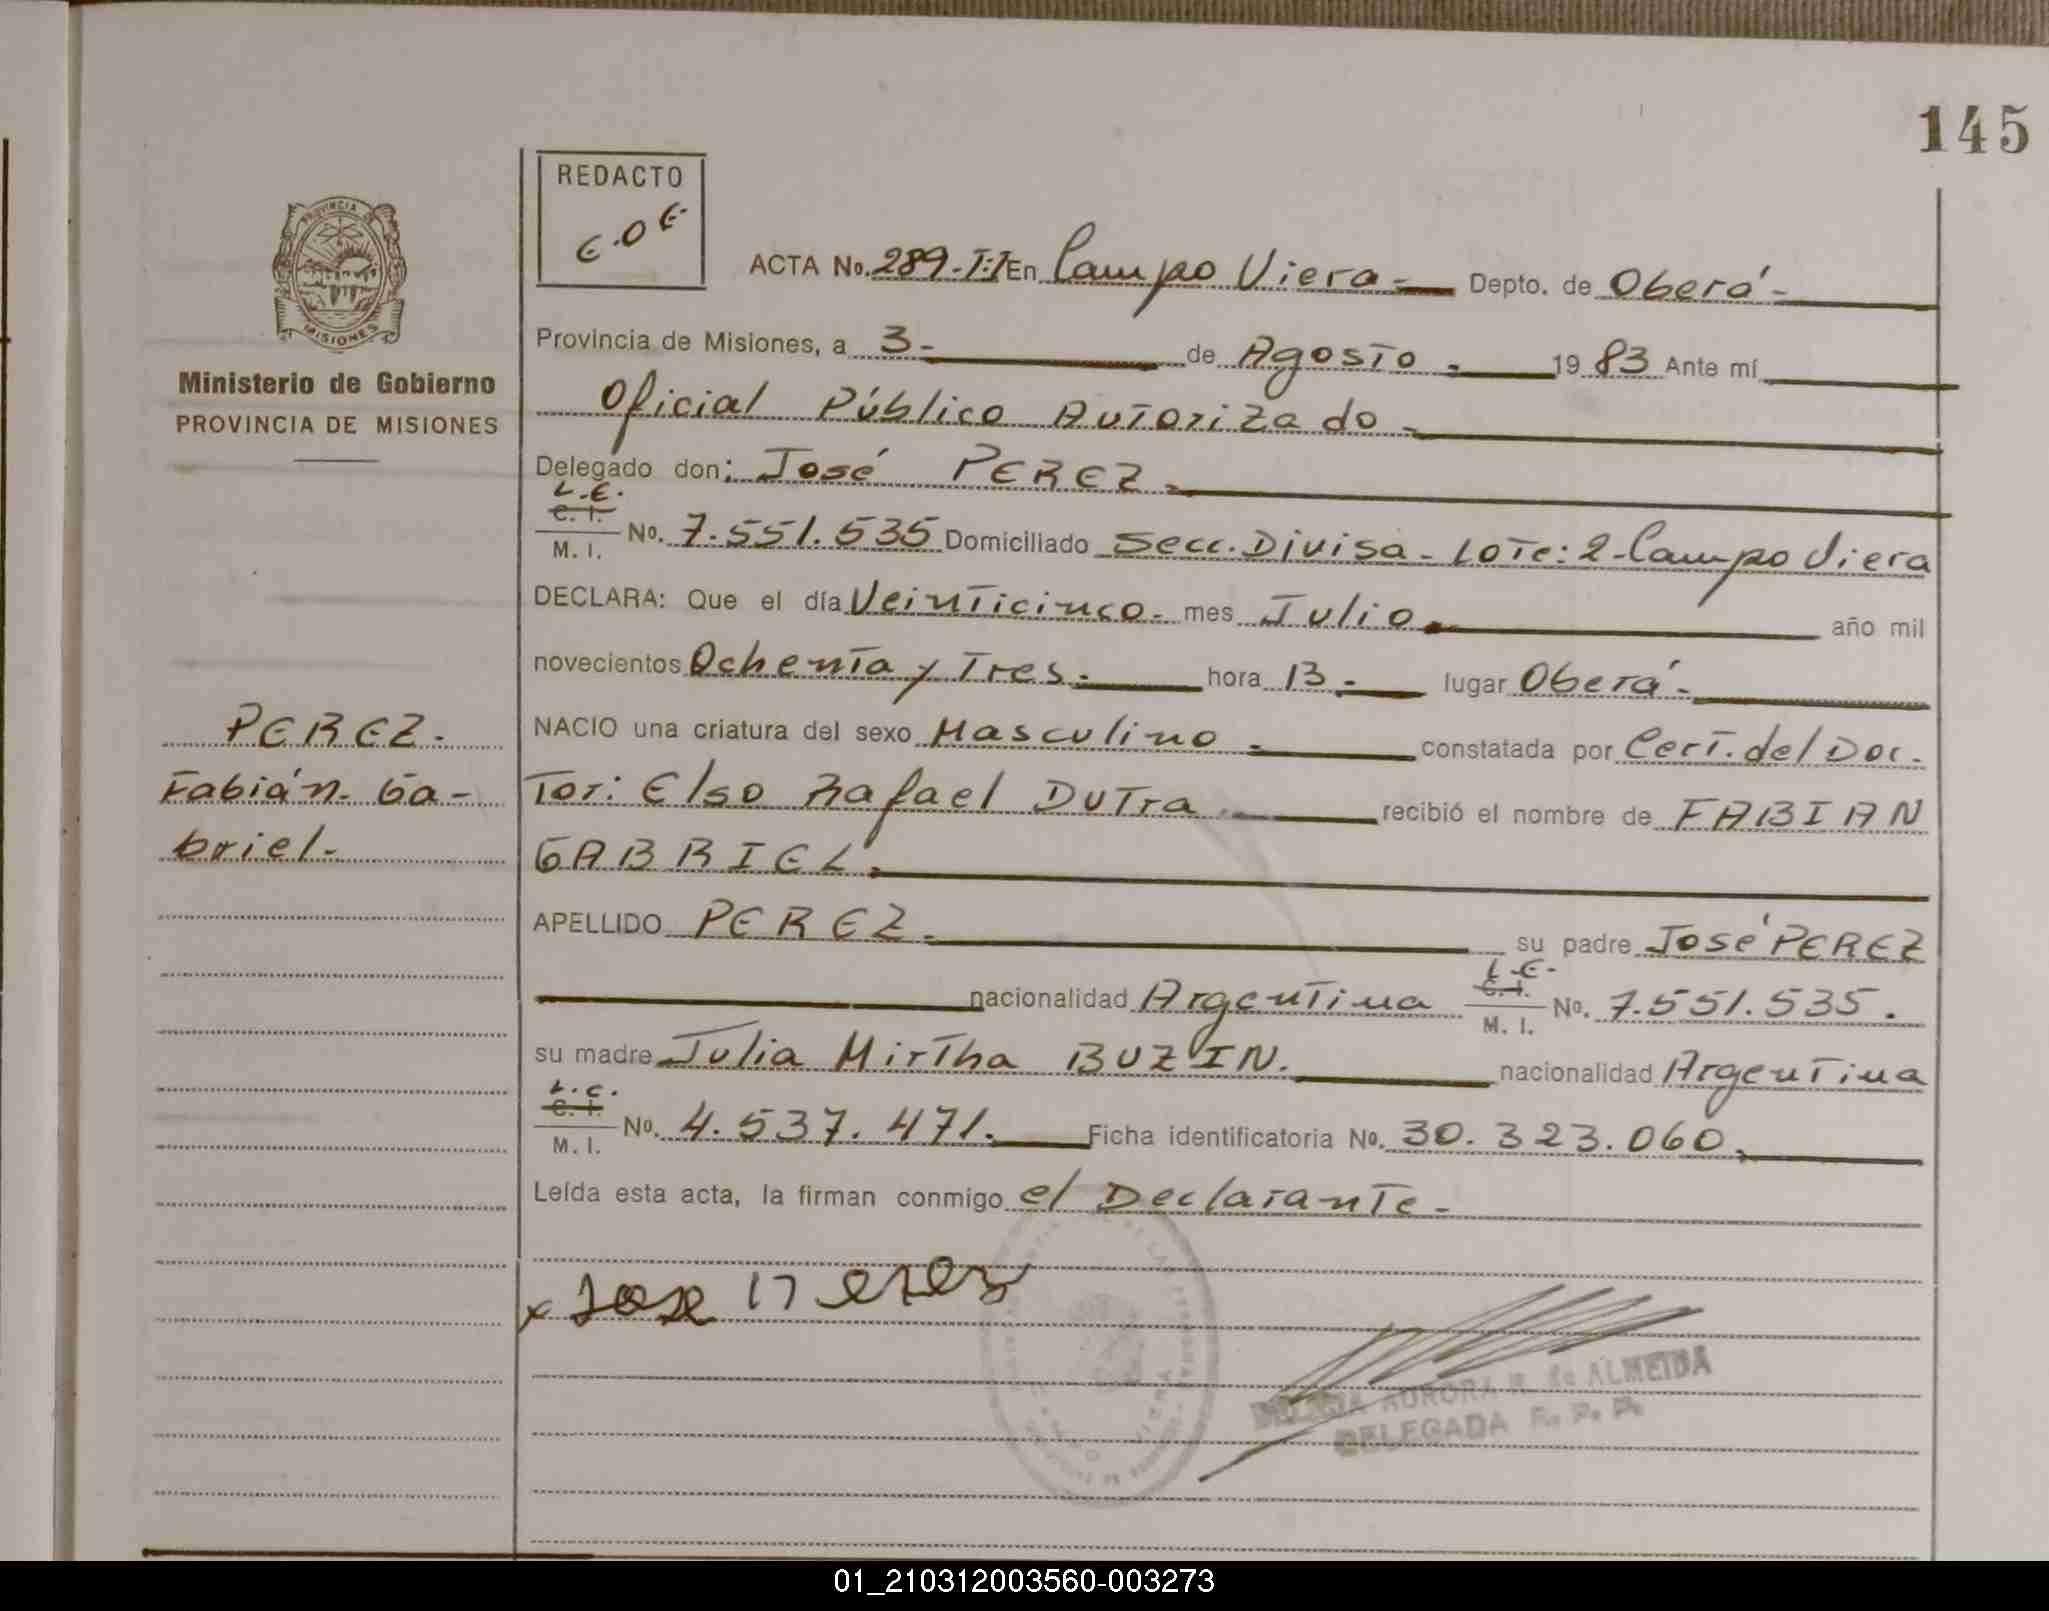 145
REDACTO
E.O.E.
PROVINCIA DE
MISIONES
Ministerio de Gobierno
PROVINCIA DE MISIONES
ACTA No. 289-T:I En Campo Viera - Depto. de Oberá -
Provincia de Misiones, a 3 - de Agosto - 19 83 Ante mí
Oficial Público Autorizado -
Delegado don: José PEREZ -
L.E.
C. I.
M. I. No. 7.551.535 Domiciliado Secc. Divisa - Lote: 2 - Campo Viera
DECLARA: Que el día Veinticinco - mes Julio - año mil
novecientos Ochenta y Tres - hora 13 - lugar Oberá -
PEREZ.
Fabián Ga-
briel.
NACIO una criatura del sexo Masculino - constatada por Cert. del Doc-
tor: Elso Rafael Dutra recibió el nombre de FABIAN
GABRIEL
APELLIDO PEREZ - su padre José PEREZ
nacionalidad Argentina L.E. C. I. M. I. No. 7.551.535.
su madre Julia Mirtha BUZIN. nacionalidad Argentina
L.C.
C. I.
M. I. No. 4.537.471. Ficha identificatoria No. 30.323.060.
Leída esta acta, la firman conmigo el Declarante -
x Jose Perez
AURORA R. de ALMEIDA
DELEGADA R. P. P.
01_210312003560-003273